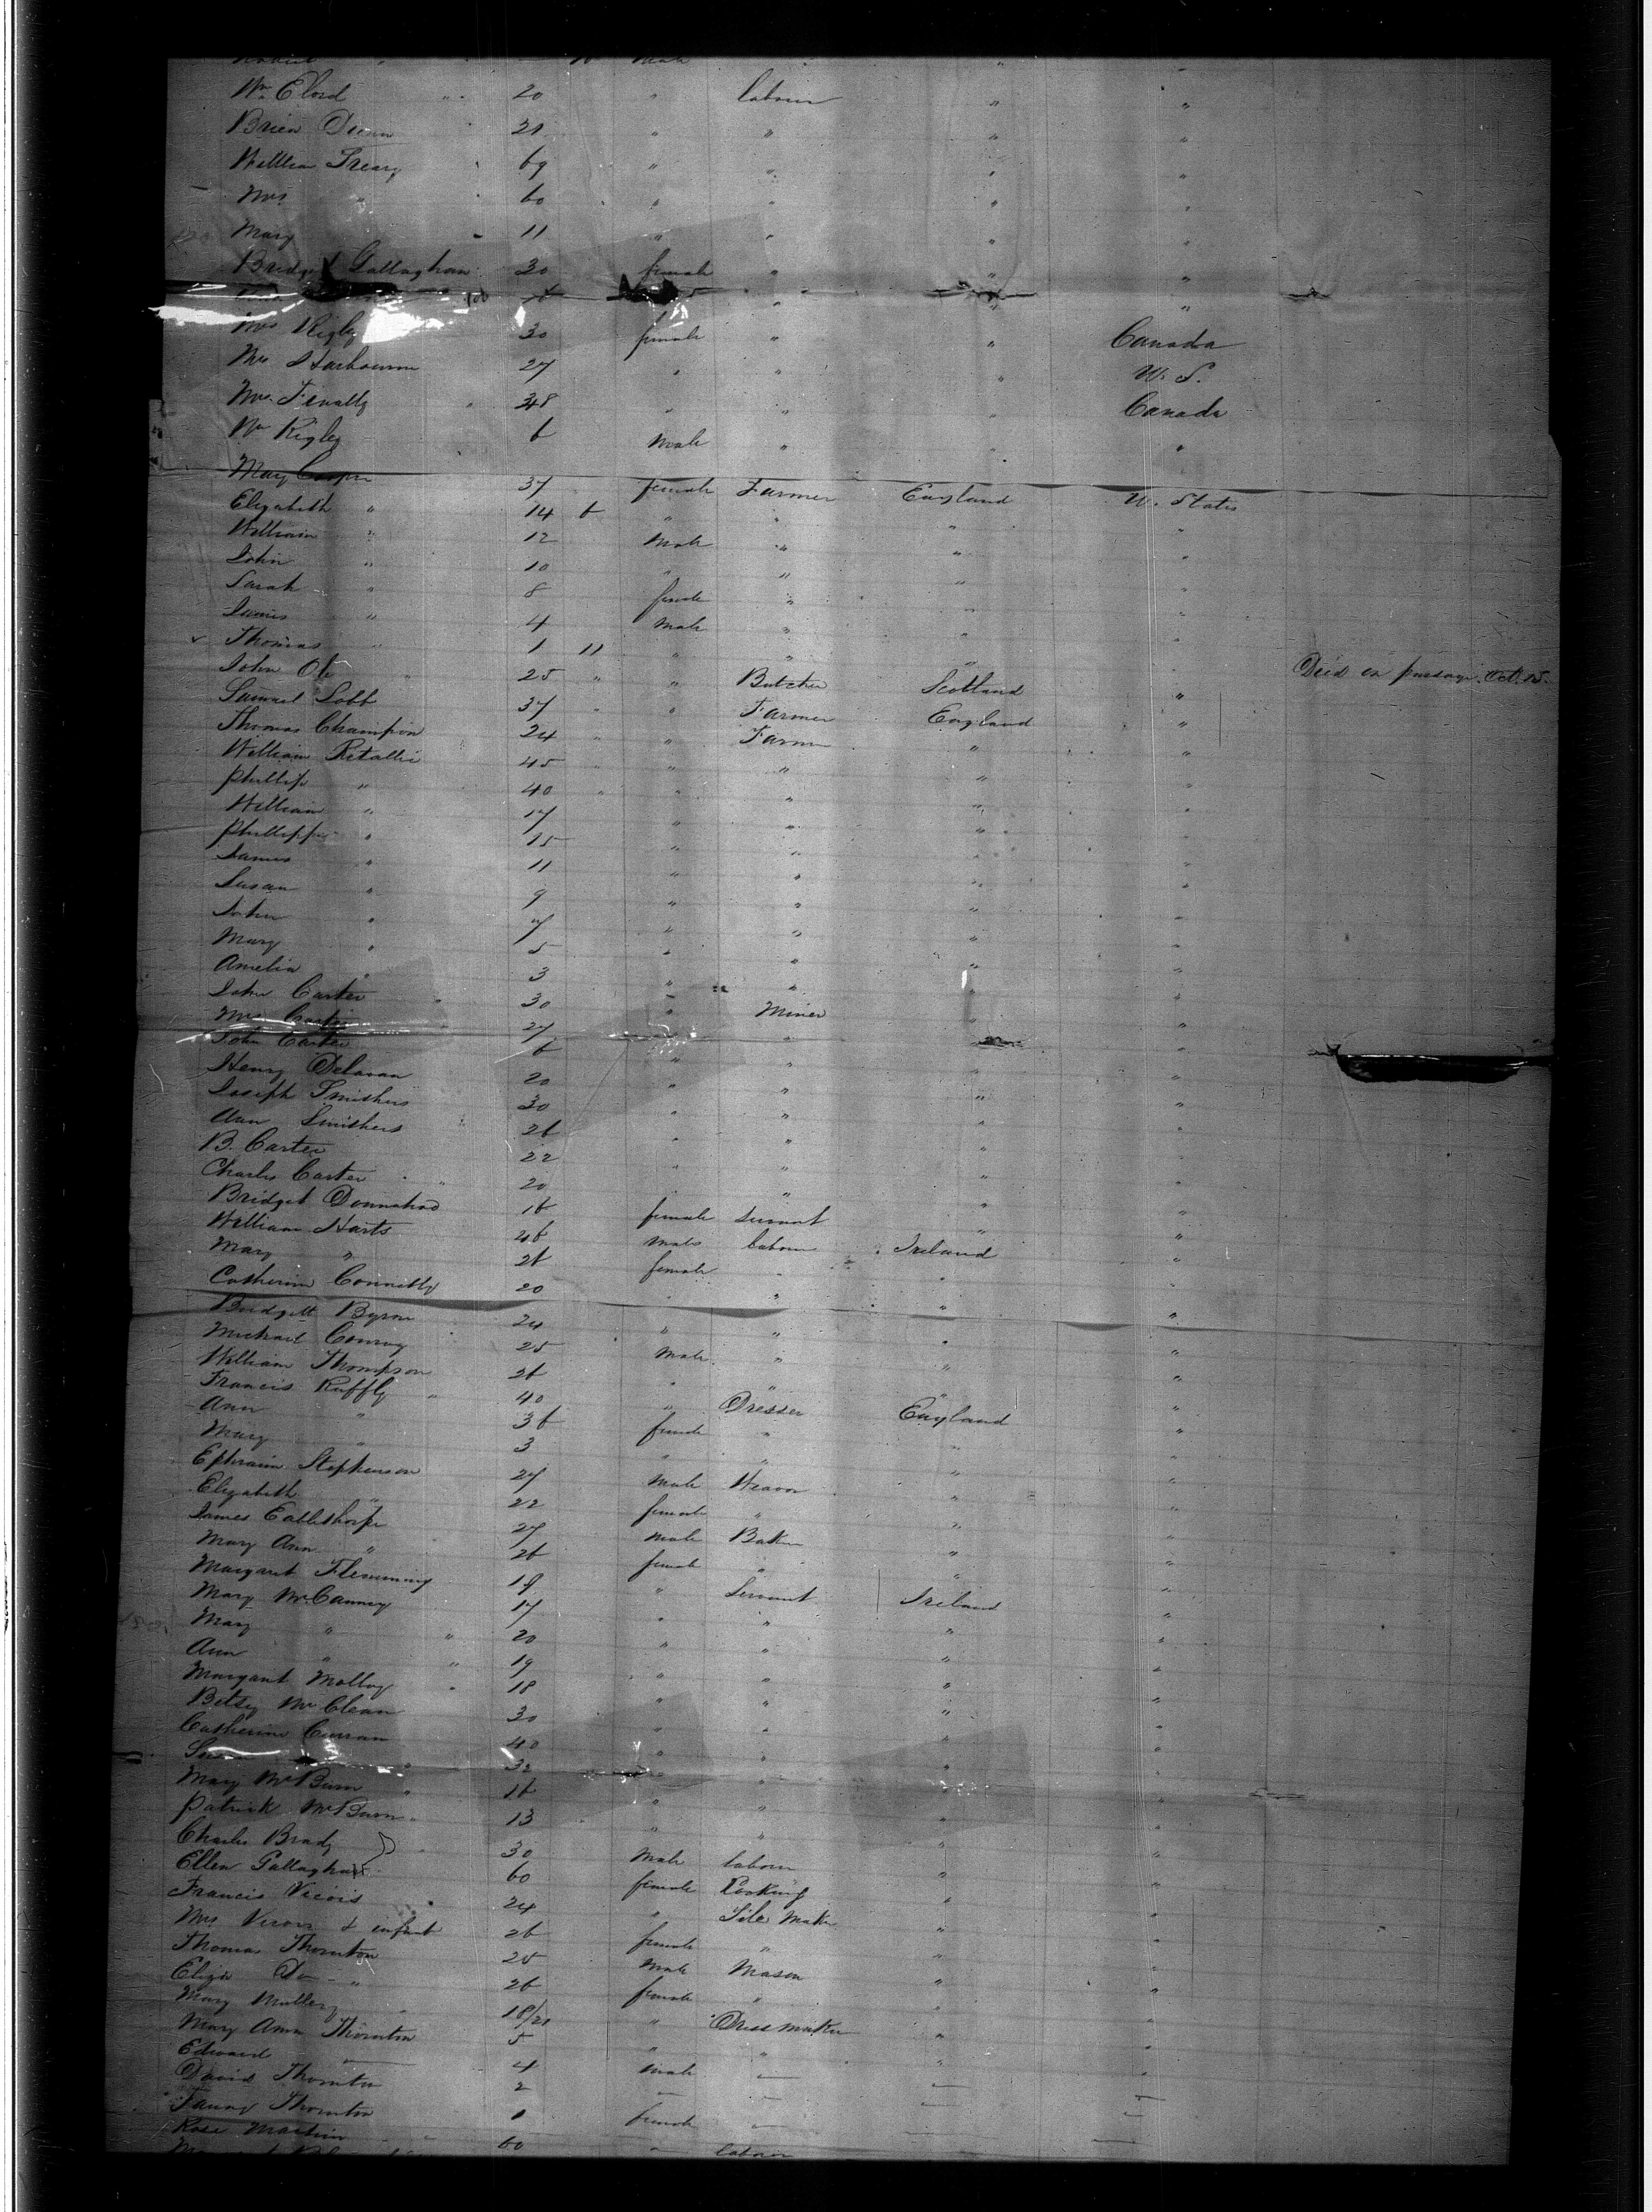 Wm Elord " 20 " labourer " "
Brien Dunn 21 " " " "
William Treary 69 " " " "
Mrs " 60 " " " "
Mary 11 " " " "
Bridget Gallagham 30 female " " "
Mrs Rigby 30 female " " Canada
Mrs Harbourn 27 " " " U. S.
Mrs Fenally 48 " " " Canada
Wm Rigley 6 male " " "
May Cooper 37 female Farmer England U. States
Elizabeth " 14 6 " " " "
William " 12 male " " "
John " 10 " " " "
Sarah " 8 female " " "
James " 4 male " " "
Thomas " 1 11 " " " " Died on passage Oct. 15.
John Ob " 25 " " Butcher Scotland "
Samuel Lobb 37 " " Farmer England "
Thomas Champion 24 " " Farmer " "
William Retallic 45 " " " " "
Phillip " 40 " " " " "
William " 17 " " " "
Phillippi " 15 " " " "
James " 11 " " " "
Susan " 9 " " " "
John " 7 " " " "
Mary " 5 " " " "
Amelia " 3 " " " "
John Carter " 30 " Miner " "
Mrs Carter 27 " " " "
John Carter 6 " " " "
Henry Delavan 20 " " " "
Joseph Smithers 30 " " " "
Ann Smithers 26 " " " "
B. Carter 22 " " " "
Charles Carter " 20 " " " "
Bridget Donnahoo 16 female servant " "
William Harts 46 male labour Ireland "
Mary " 26 female " " "
Catherine Connelly 20 " " " "
Bridgett Byrne 24 " " " "
Michael Conroy 25 male " " "
William Thompson 26 " " " "
Francis Ruffly " 40 " Dresser England "
Ann " 36 female " " "
Mary " 3 " " " "
Ephraim Stephenson 27 male Weaver " "
Elizabeth " 22 female " " "
James Cablethorpe 27 male Baker " "
Mary Ann " 26 female " " "
Margaret Flemming 19 " Servant Ireland "
Mary McCanney 17 " " " "
Mary " " 20 " " " "
Ann " " 19 " " " "
Margant Molloy " 18 " " " "
Betsy McClean 30 " " " "
Catherine Curran 40 " " " "
" 32 " " " "
Mary McBurn " 16 " " " "
Patrick McBurn " 13 " " " "
Charles Brady " 30 male labour " "
Ellen Gallagher 60 female Cooking " "
Francis Vicois 24 " Tile Maker " "
Mrs Vicois & infant 26 female " " "
Thomas Thornton 25 male Mason " "
Eliza Do " 26 female " " "
Mary Mullery 18/21 " Dress maker " "
Mary Ann Thornton 5 " " " "
Edward — 4 male — — —
David Thornton 2 — — — —
Fanny Thornton 1 female — — —
Rose Martin " 60 — labour